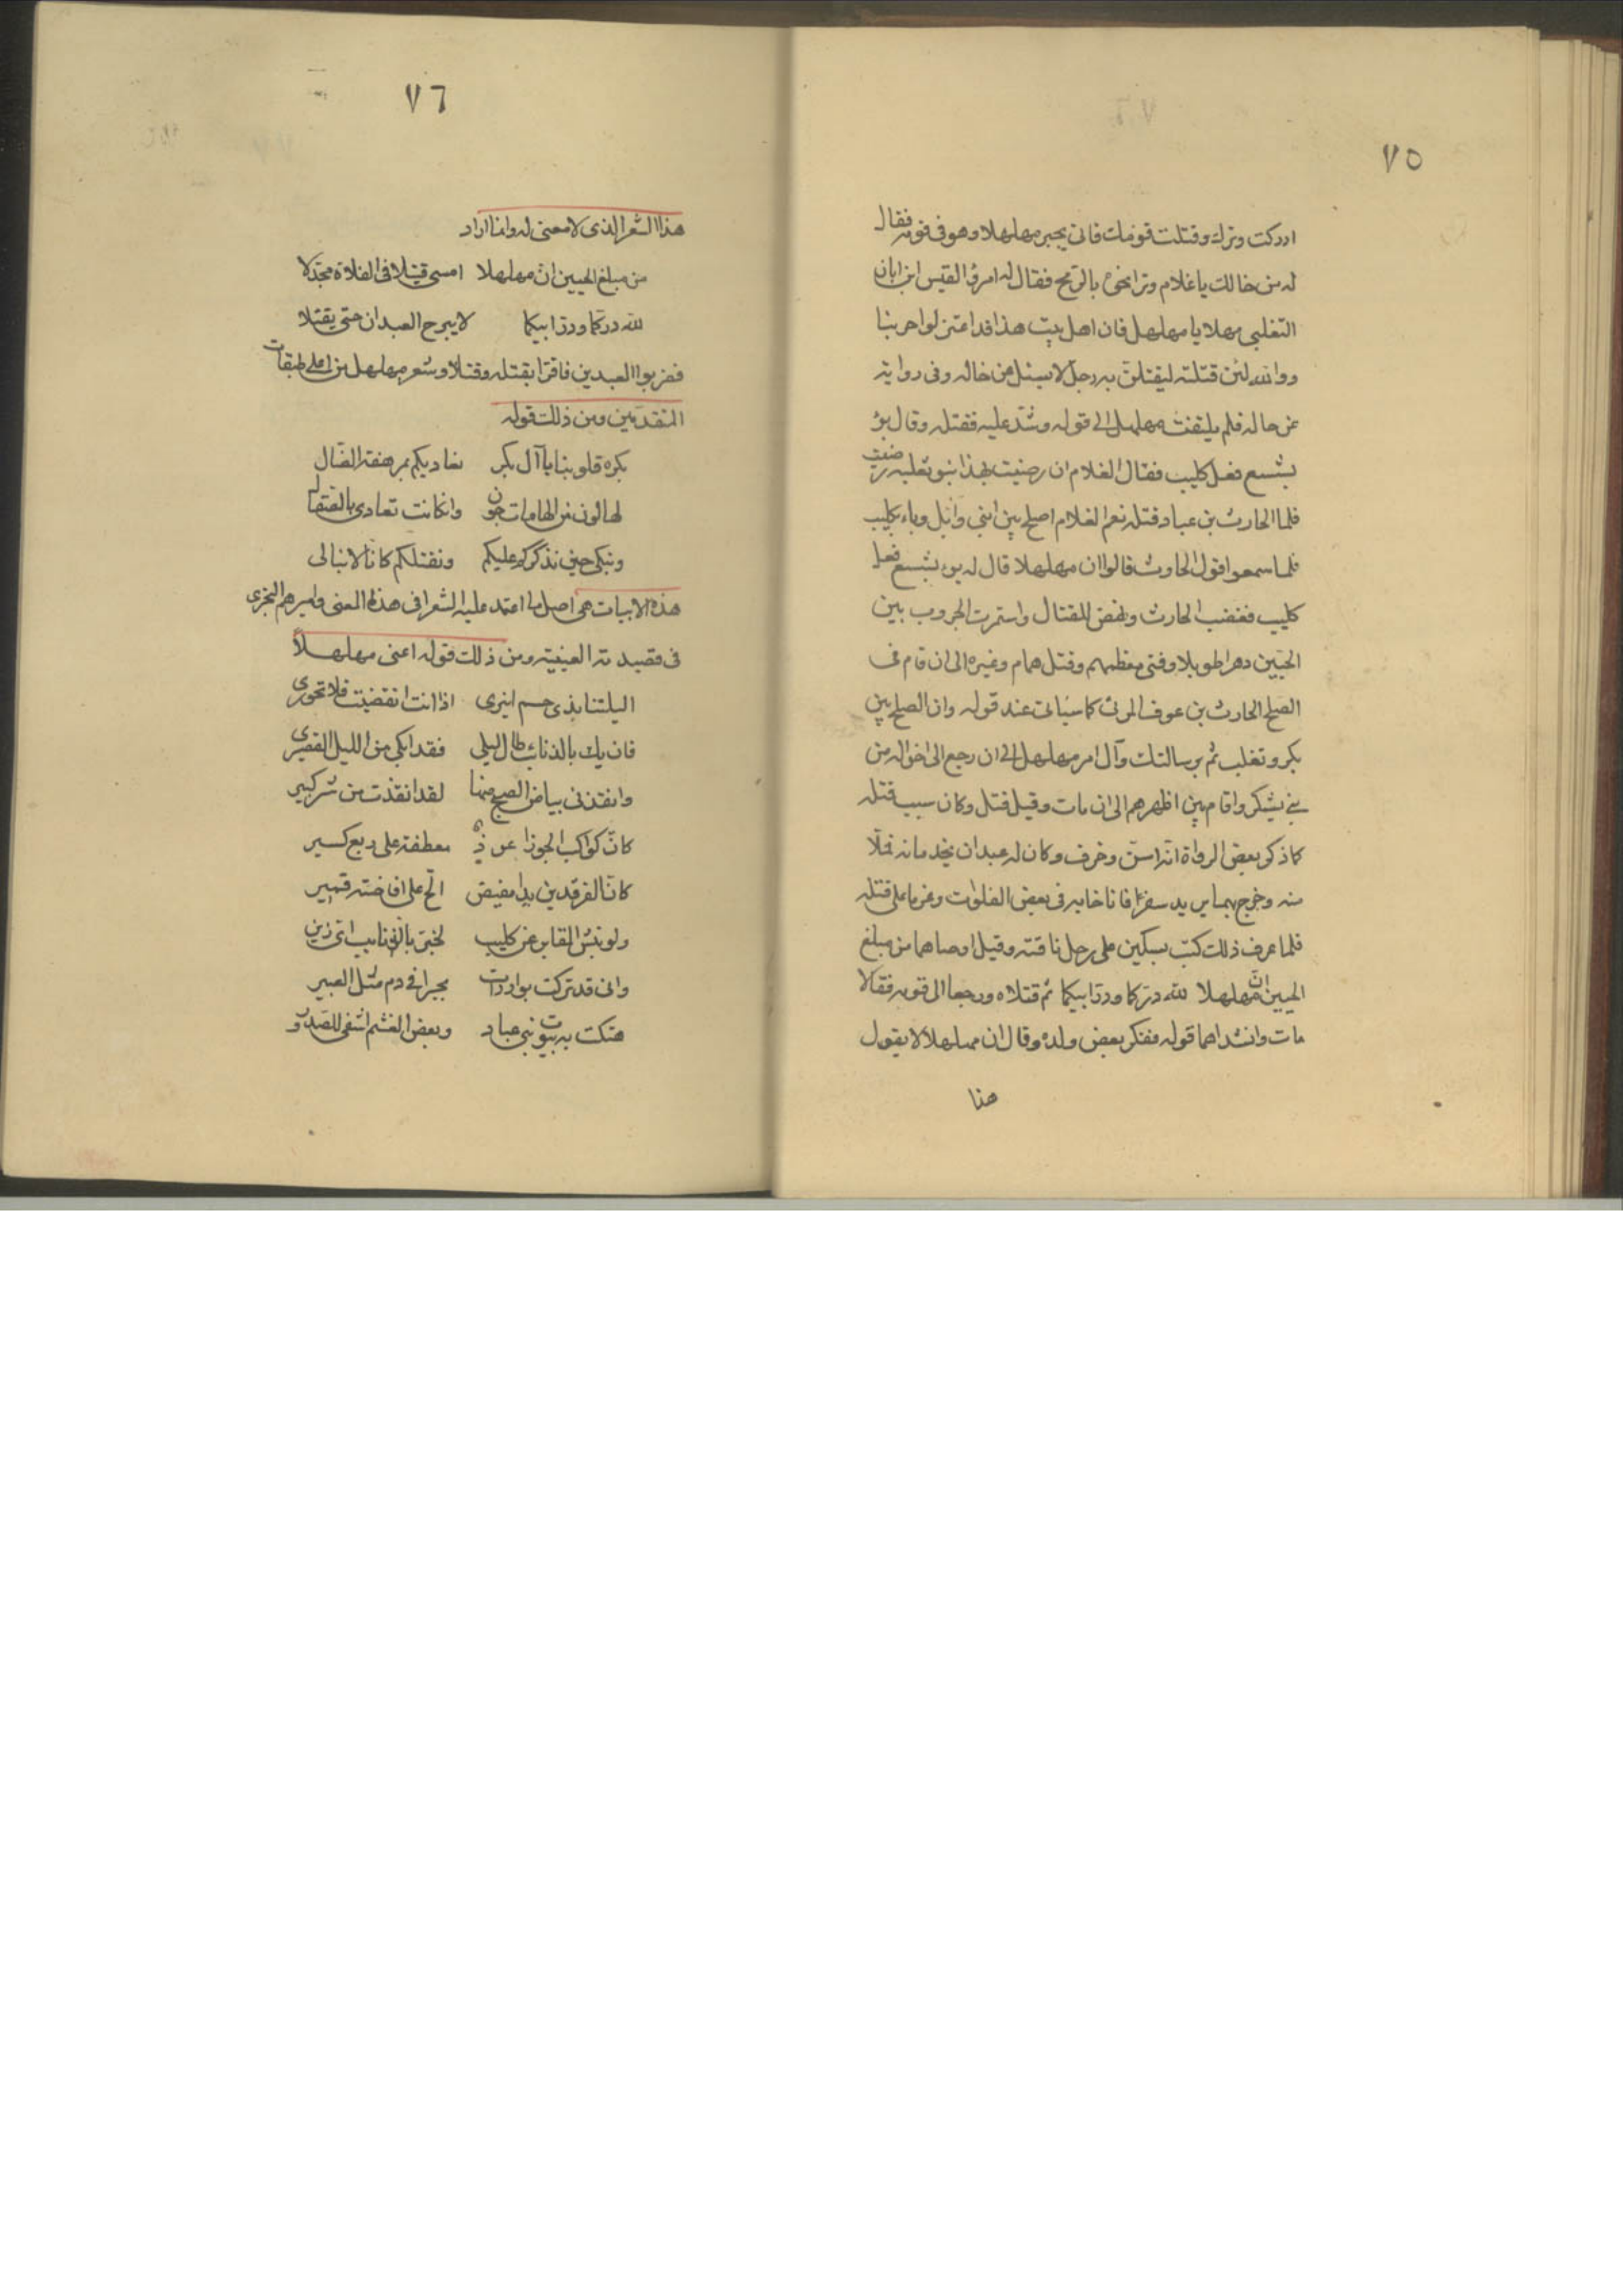 ٧٥
ادركت وترك وقتلت قومك فاتى بجير مهلهلا وهو فى قومه فقال
له من خالك يا غلام وترا نحوه بالرمح فقال له امرؤ القيس ابن ابان
التغلبى مهلا يا مهلهل فان اهل بيت هذا قد اعتزلوا حربنا
ووالله لئن قتلته ليقتلن به رجل لا يسئل عن خاله وفى رواية
عن حاله فلم يلتفت مهلهل الى قوله وشد عليه فقتله وقال بؤ
بشسع نعل كليب فقال الغلام ان رضيت بهذا بنو ثعلبه رضيت
فلما الحارث بن عباد قتله نعم الغلام اصلح بين ابنى وائل وباء بكليب
فلما سمعوا قول الحارث قالوا ان مهلهلا قال له بوء بشسع نعل
كليب فغضب الحارث ونهض للقتال واستمرت الحروب بين
الحيين دهرا طويلا وفنى معظمهم وقتل همام وغيره الى ان قام فى
الصلح الحارث بن عوف المرى كما سياتى عند قوله وان الصلح بين
بكر وتغلب ثم برسالتك وآل امر مهلهل الى ان رجع الى اخواله من
بنى يشكر واقام بين اظهرهم الى ان مات وقيل قتل وكان سبب قتله
كما ذكر بعض الرواة انه اسن وخرف وكان له عبدان يخدمانه فملا
منه وخرج بهما يريد سفرا فاناخا به فى بعض الفلوات وعزما على قتله
فلما عرف ذلك كتب بسكين على رحل ناقته وقيل اوصاهما من مبلغ
الحيين ان مهلهلا لله دركما ودر ابيكما ثم قتلاه ورجعا الى قومه فقالا
مات وانشداهما قوله ففكر بعض ولده وقال ان مهلهلا لا يقول
هذا
٧٦
هذا الشعر الذى لا معنى له وانما اراد
من مبلغ الحيين ان مهلهلا امسى قتيلا فى الفلاة مجدلا
لله دركما ودر ابيكما لا يبرح العبدان حتى يقتلا
فضربوا العبدين فاقرا بقتله وقتلا وشعر مهلهل من اعلى طبقات
المتقدمين ومن ذلك قوله
بكره قلوبنا يا آل بكر نغاديكم بمرهفة النصال
لها لون من الهامات جون وان كانت تغادى بالصقال
ونبكى حين نذكركم عليكم ونقتلكم كانا لا نبالى
هذه الابيات هى اصل ما اعتمد عليه الشعرا فى هذا المعنى واميرهم البحترى
فى قصيدته العينية ومن ذلك قوله اعنى مهلهلاً
اليلتنا بذى حسم انيرى اذا انت انقضيت فلا تحورى
فان يك بالذنائب طال ليلى فقد ابكى من الليل القصيرى
وانقذنى بياض الصبح منها لقد انقذت من شر كبير
كان كواكب الجوزا عوذ معطفة على ربع كسير
كان الفرقدين يدا مفيض الح على افاضته قمير
ولو نبش المقابر عن كليب لخبر بالذنايب اى زير
وانى قد تركت بواردات بجيرا فى دم مثل العبير
هتكت به بيوت بنى عباد وبعض الغشم اشفى للصدور